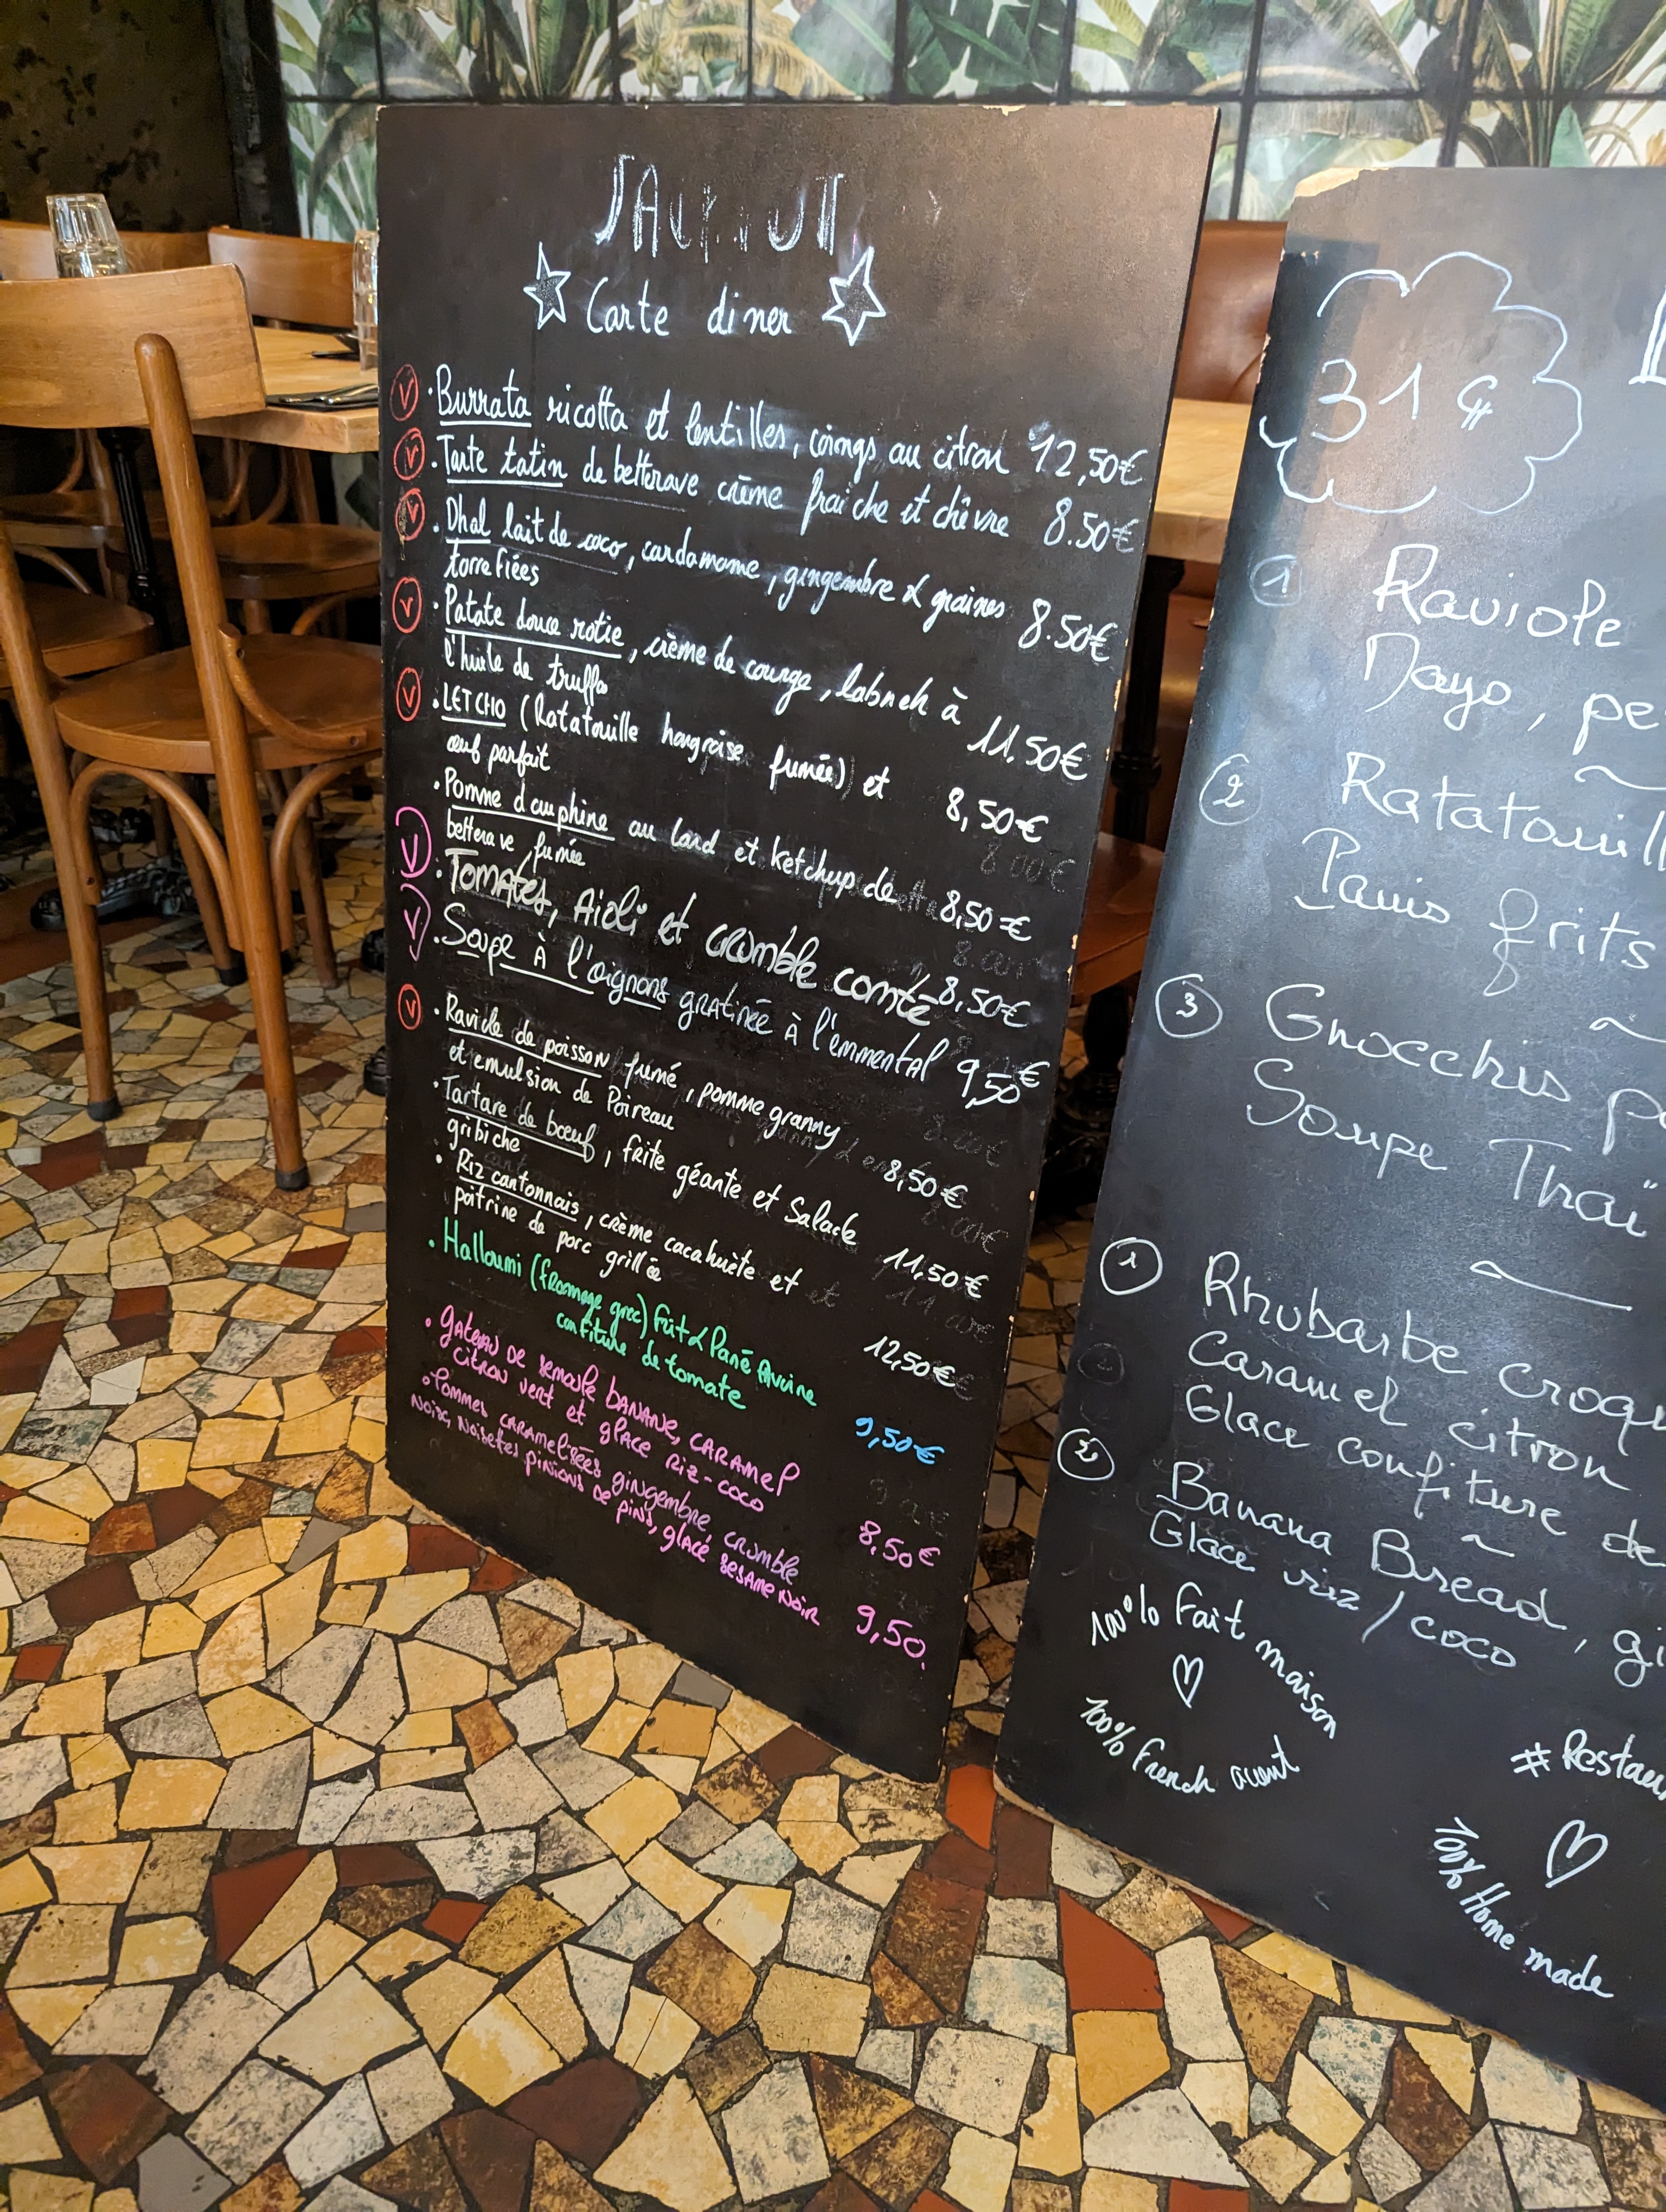 Carte diner
V · Burrata ricotta et lentilles, coings au citron 12,50€
V · Tarte tatin de betterave crème fraiche et chèvre 8.50€
V · Dhal lait de coco, cardamome, gingembre & graines 8.50€
torrefiées
V · Patate douce rotie, crème de courge, labneh à 11.50€
l'huile de truffe
V · LETCHO (Ratatouille hongroise fumée) et 8,50€
œuf parfait
· Pomme dauphine au lard et ketchup de 8,50€
betterave fumée
V · Tomates, Aioli et crumble comté 8,50€
V · Soupe À l'oignons gratinée à l'emmental 9,50€
V · Raviole de poisson fumé, pomme granny 8,50€
et emulsion de Poireau
· Tartare de bœuf, frite géante et Salade 11,50€
gribiche
· Riz cantonnais, crème cacahuète et 12,50€
poitrine de porc grillée
· Halloumi (fromage grec) frit & Pané Avoine 9,50€
confiture de tomate
· gateau de semoule banane, caramel 8,50€
citron vert et glace riz-coco
· Pommes caramelisées gingembre, crumble 9,50.
Noix, noisettes pinions de pins, glace sesame noir
31€
1 Raviole
Mayo, pe
2 Ratatouill
Panis frits
3 Gnocchis p
Soupe Thaï
1 Rhubarbe croqu
Caramel citron
Glace confiture de
2 Banana Bread, gi
Glace riz/coco
100% Fait maison
100% French
# Restau
100% Home made